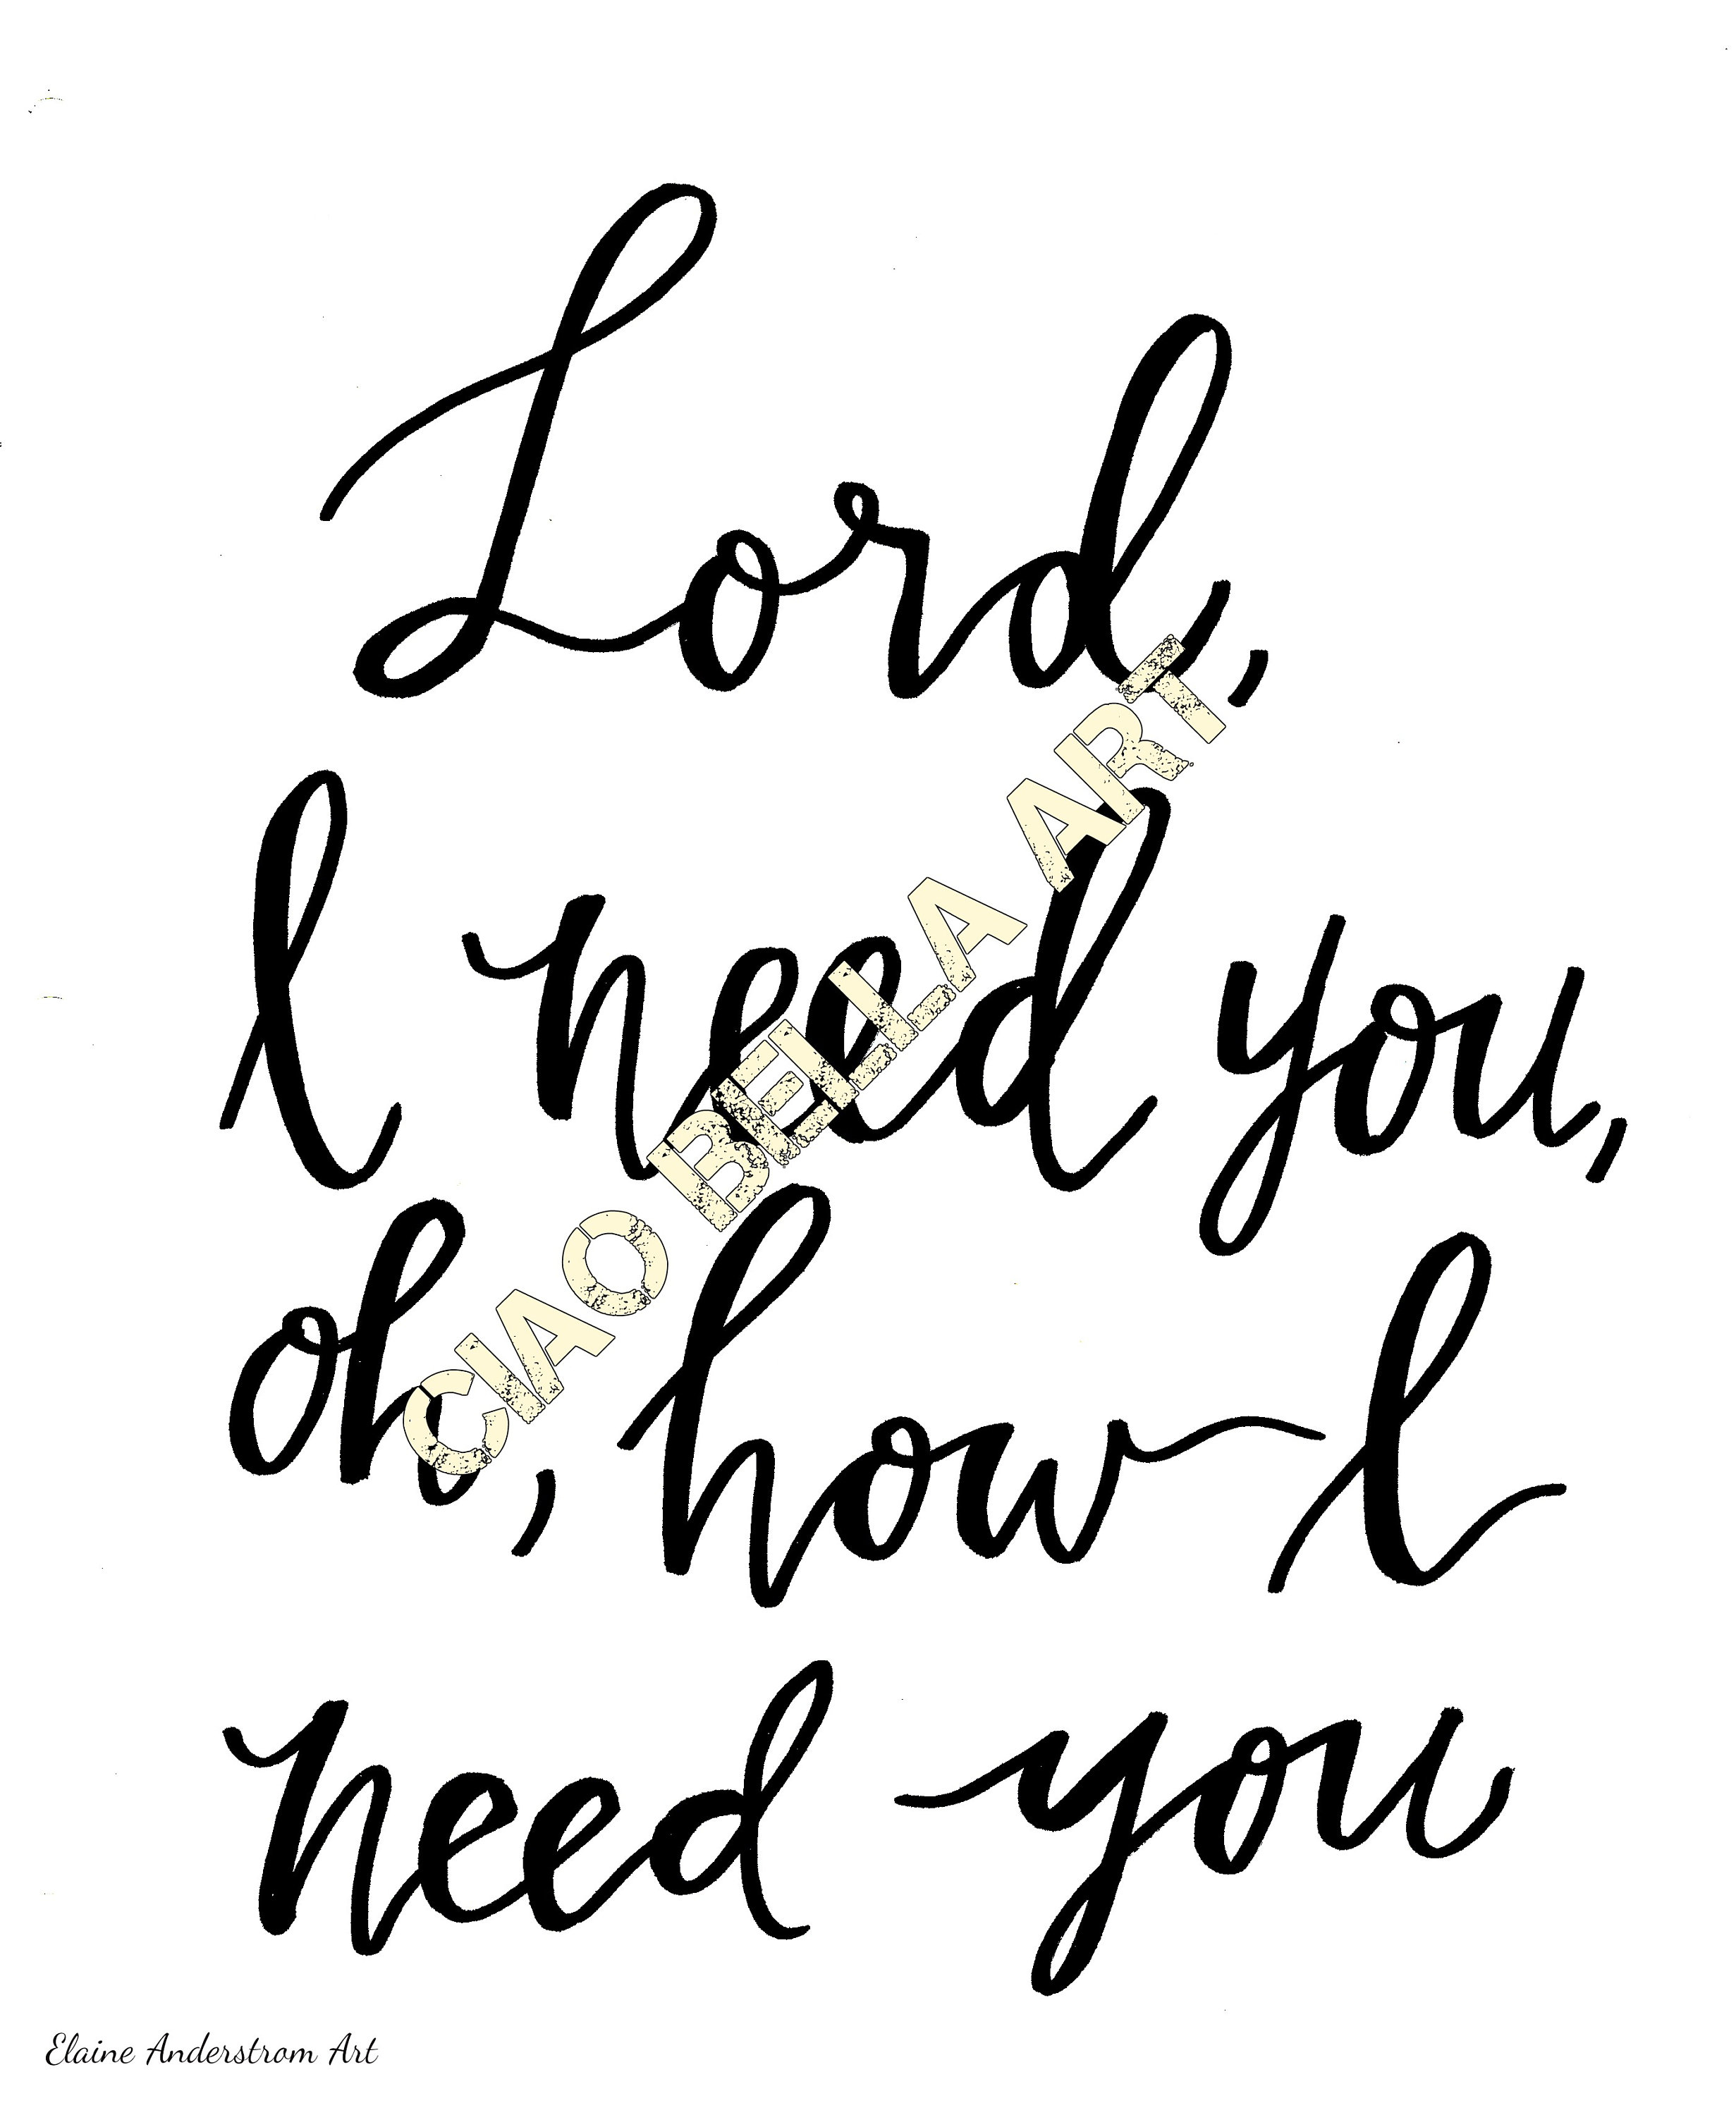 Lord,
I need you,
oh, how I
need you
CIAO BELLA ART
Elaine Anderstrom Art